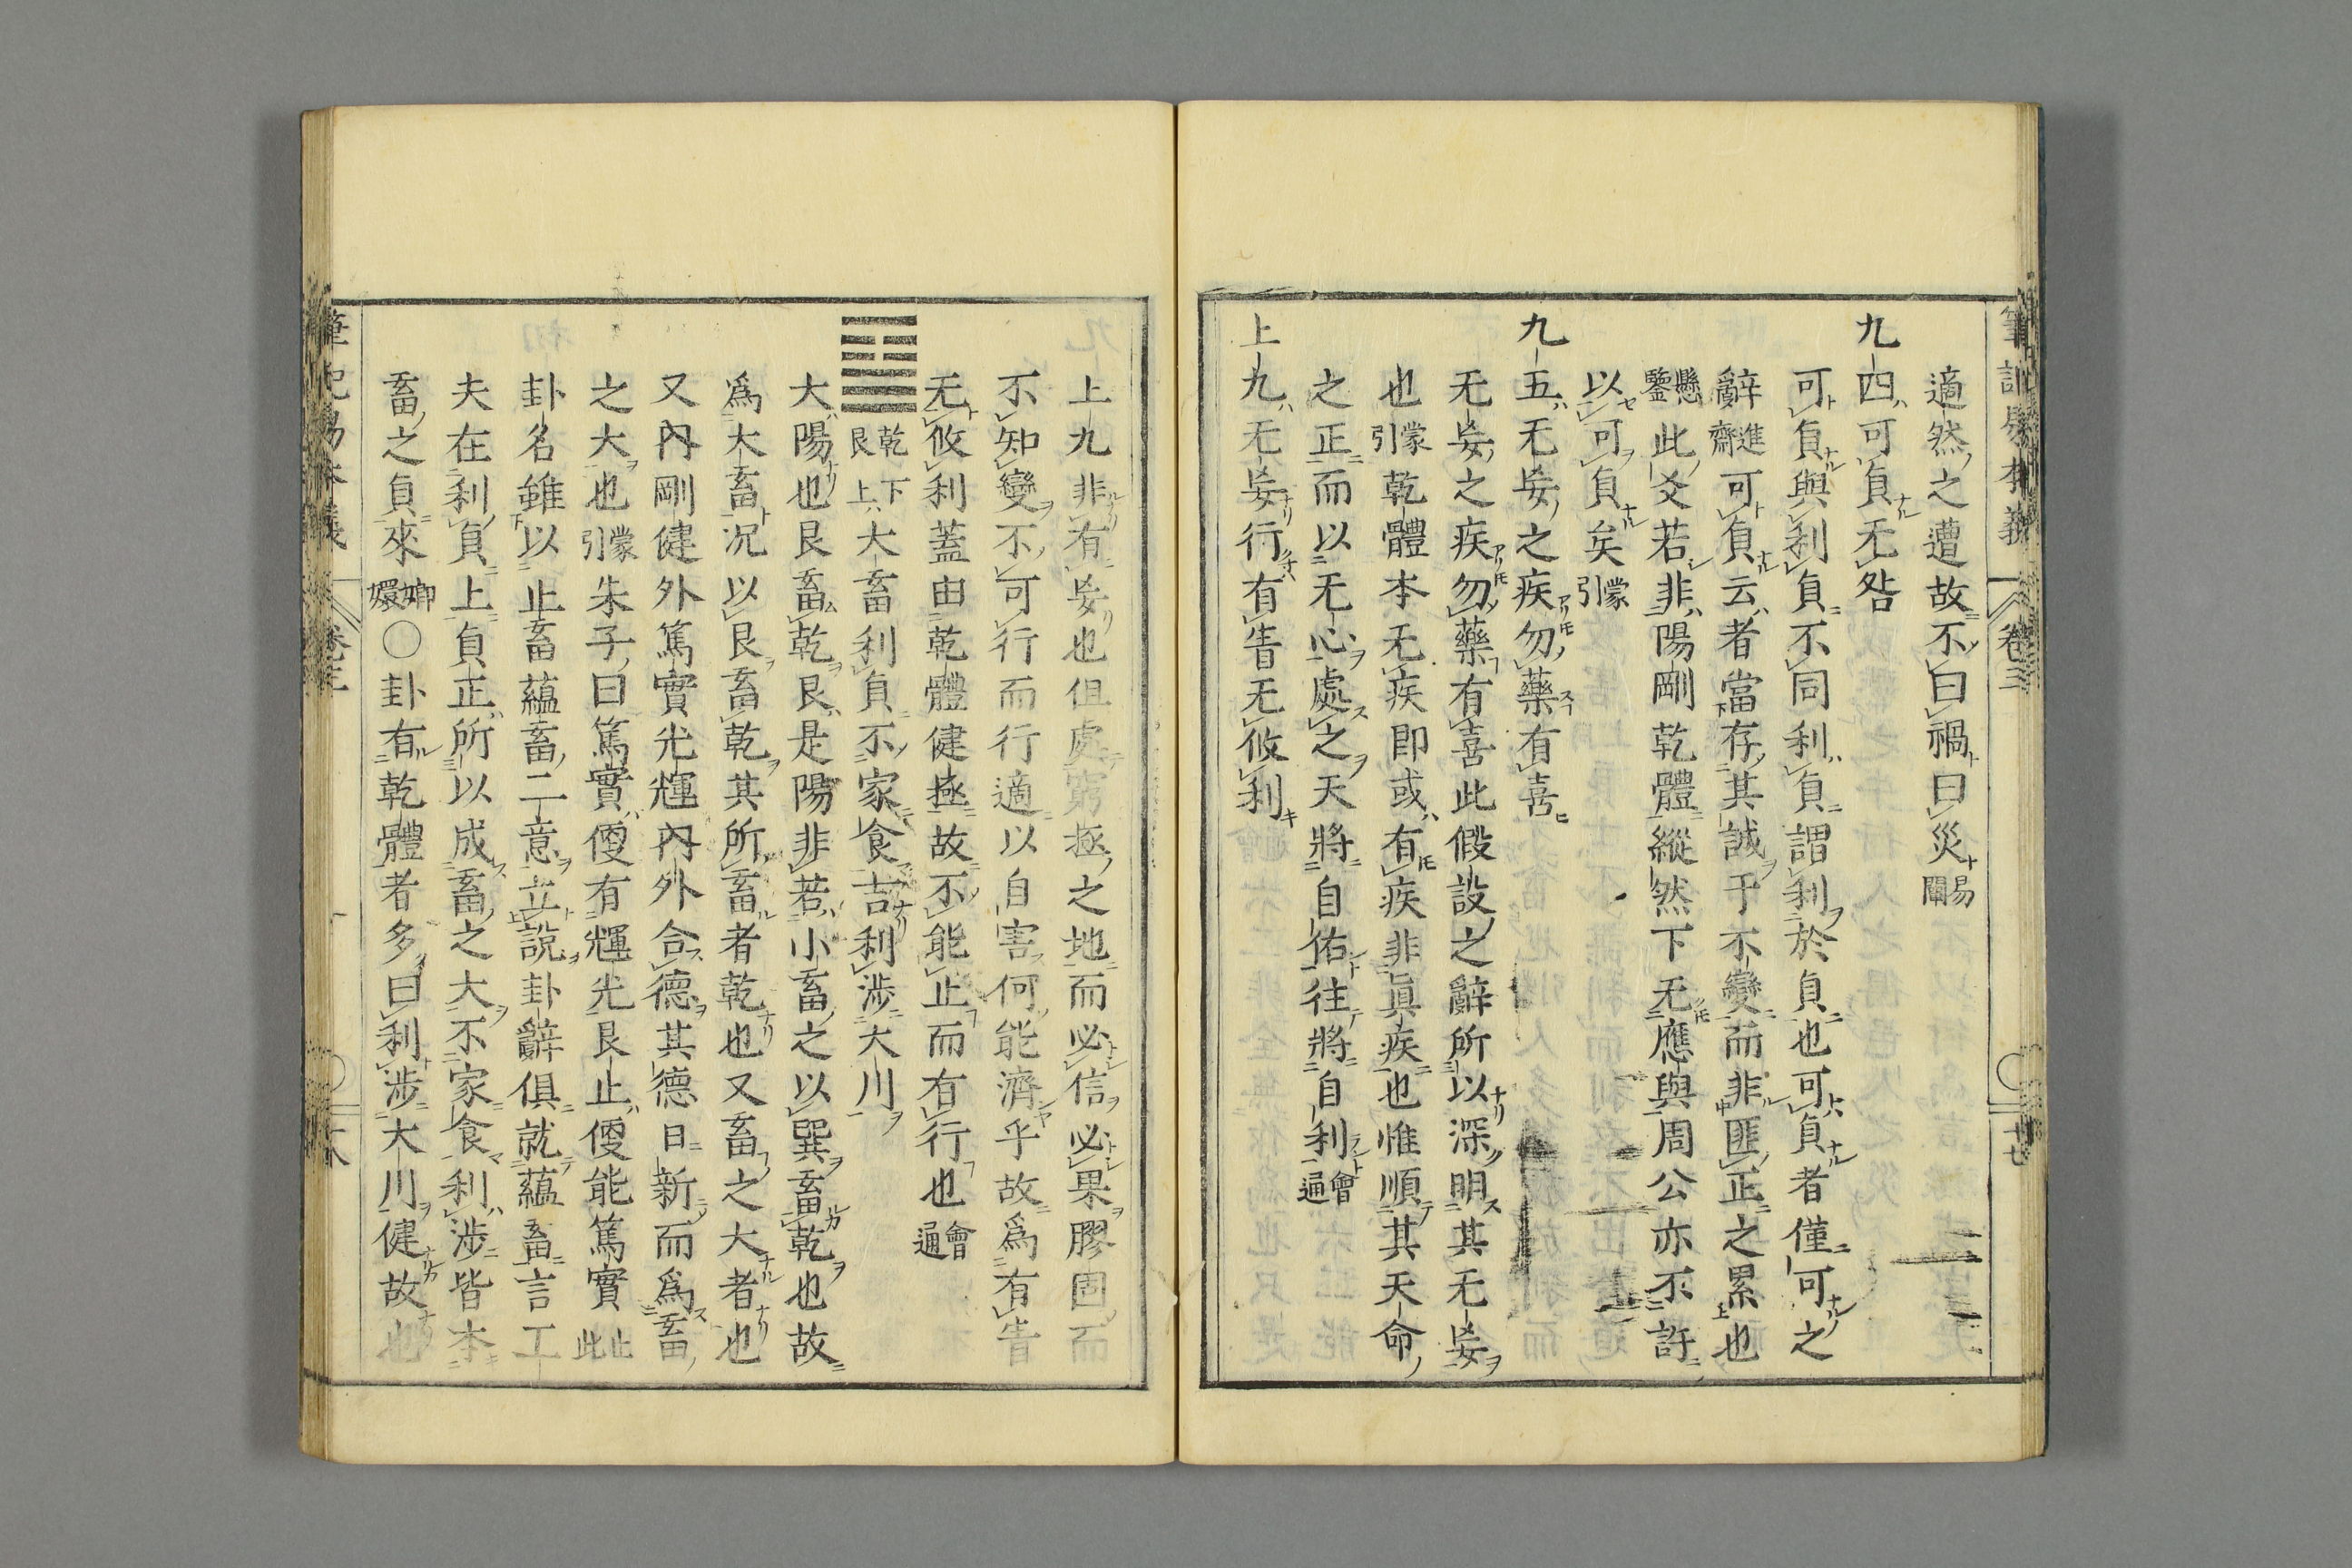 筆記易本義 卷三 十七
適然之遭故不曰禍曰災易闡
九四可貞无咎
可貞與利貞不同利貞謂利於貞也可貞者僅可之
辭進齋可貞云者當存其誠于不變而非匪正之累也
懸鑒此爻若非陽剛乾體縱然下无應與周公亦不許
以可貞矣蒙引
九五无妄之疾勿藥有喜
无妄之疾勿藥有喜此假設之辭所以深明其无妄
也蒙引乾體本无疾即或有疾非眞疾也惟順其天命
之正而以无心處之天將自佑往將自利會通
上九无妄行有眚无攸利
上九非有妄也但處窮極之地而必信必果膠固而
不知變不可行而行適以自害何能濟乎故爲有眚
无攸利蓋由乾體健極故不能止而有行也會通
䷙乾下艮上大畜利貞不家食吉利涉大川
大陽也艮畜乾艮是陽非若小畜之以巽畜乾也故
爲大畜況以艮畜乾其所畜者乾也又畜之大者也
又內剛健外篤實光輝內外合德其德日新而爲畜
之大也蒙引朱子曰篤實便有輝光艮止便能篤實止此
卦名雖以止畜蘊畜二意立說卦辭俱就蘊畜言工
夫在利貞上貞正所以成畜之大不家食利涉皆本
畜之貞來嫏嬛○卦有乾體者多曰利涉大川健故也
筆記易本義 卷三